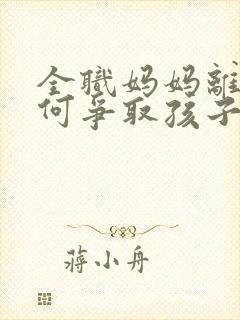 全職妈妈離
何爭取孩子
蔣小舟